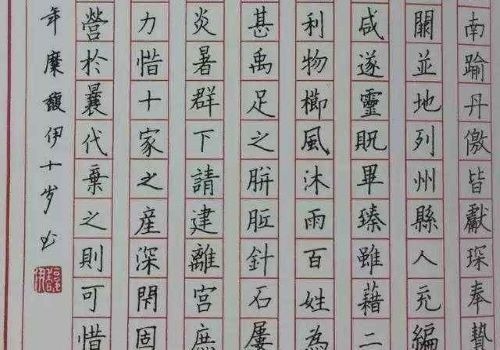 南踰丹徼皆獻琛奉贄
闕並地列州縣人充編
咸遂靈貺畢臻雖藉二
利物櫛風沐雨百姓為
甚禹足之胼胝針石屢
炎暑群下請建離宮庶
力惜十家之產深閉固
營於曩代棄之則可惜
年糜馥伊十岁书